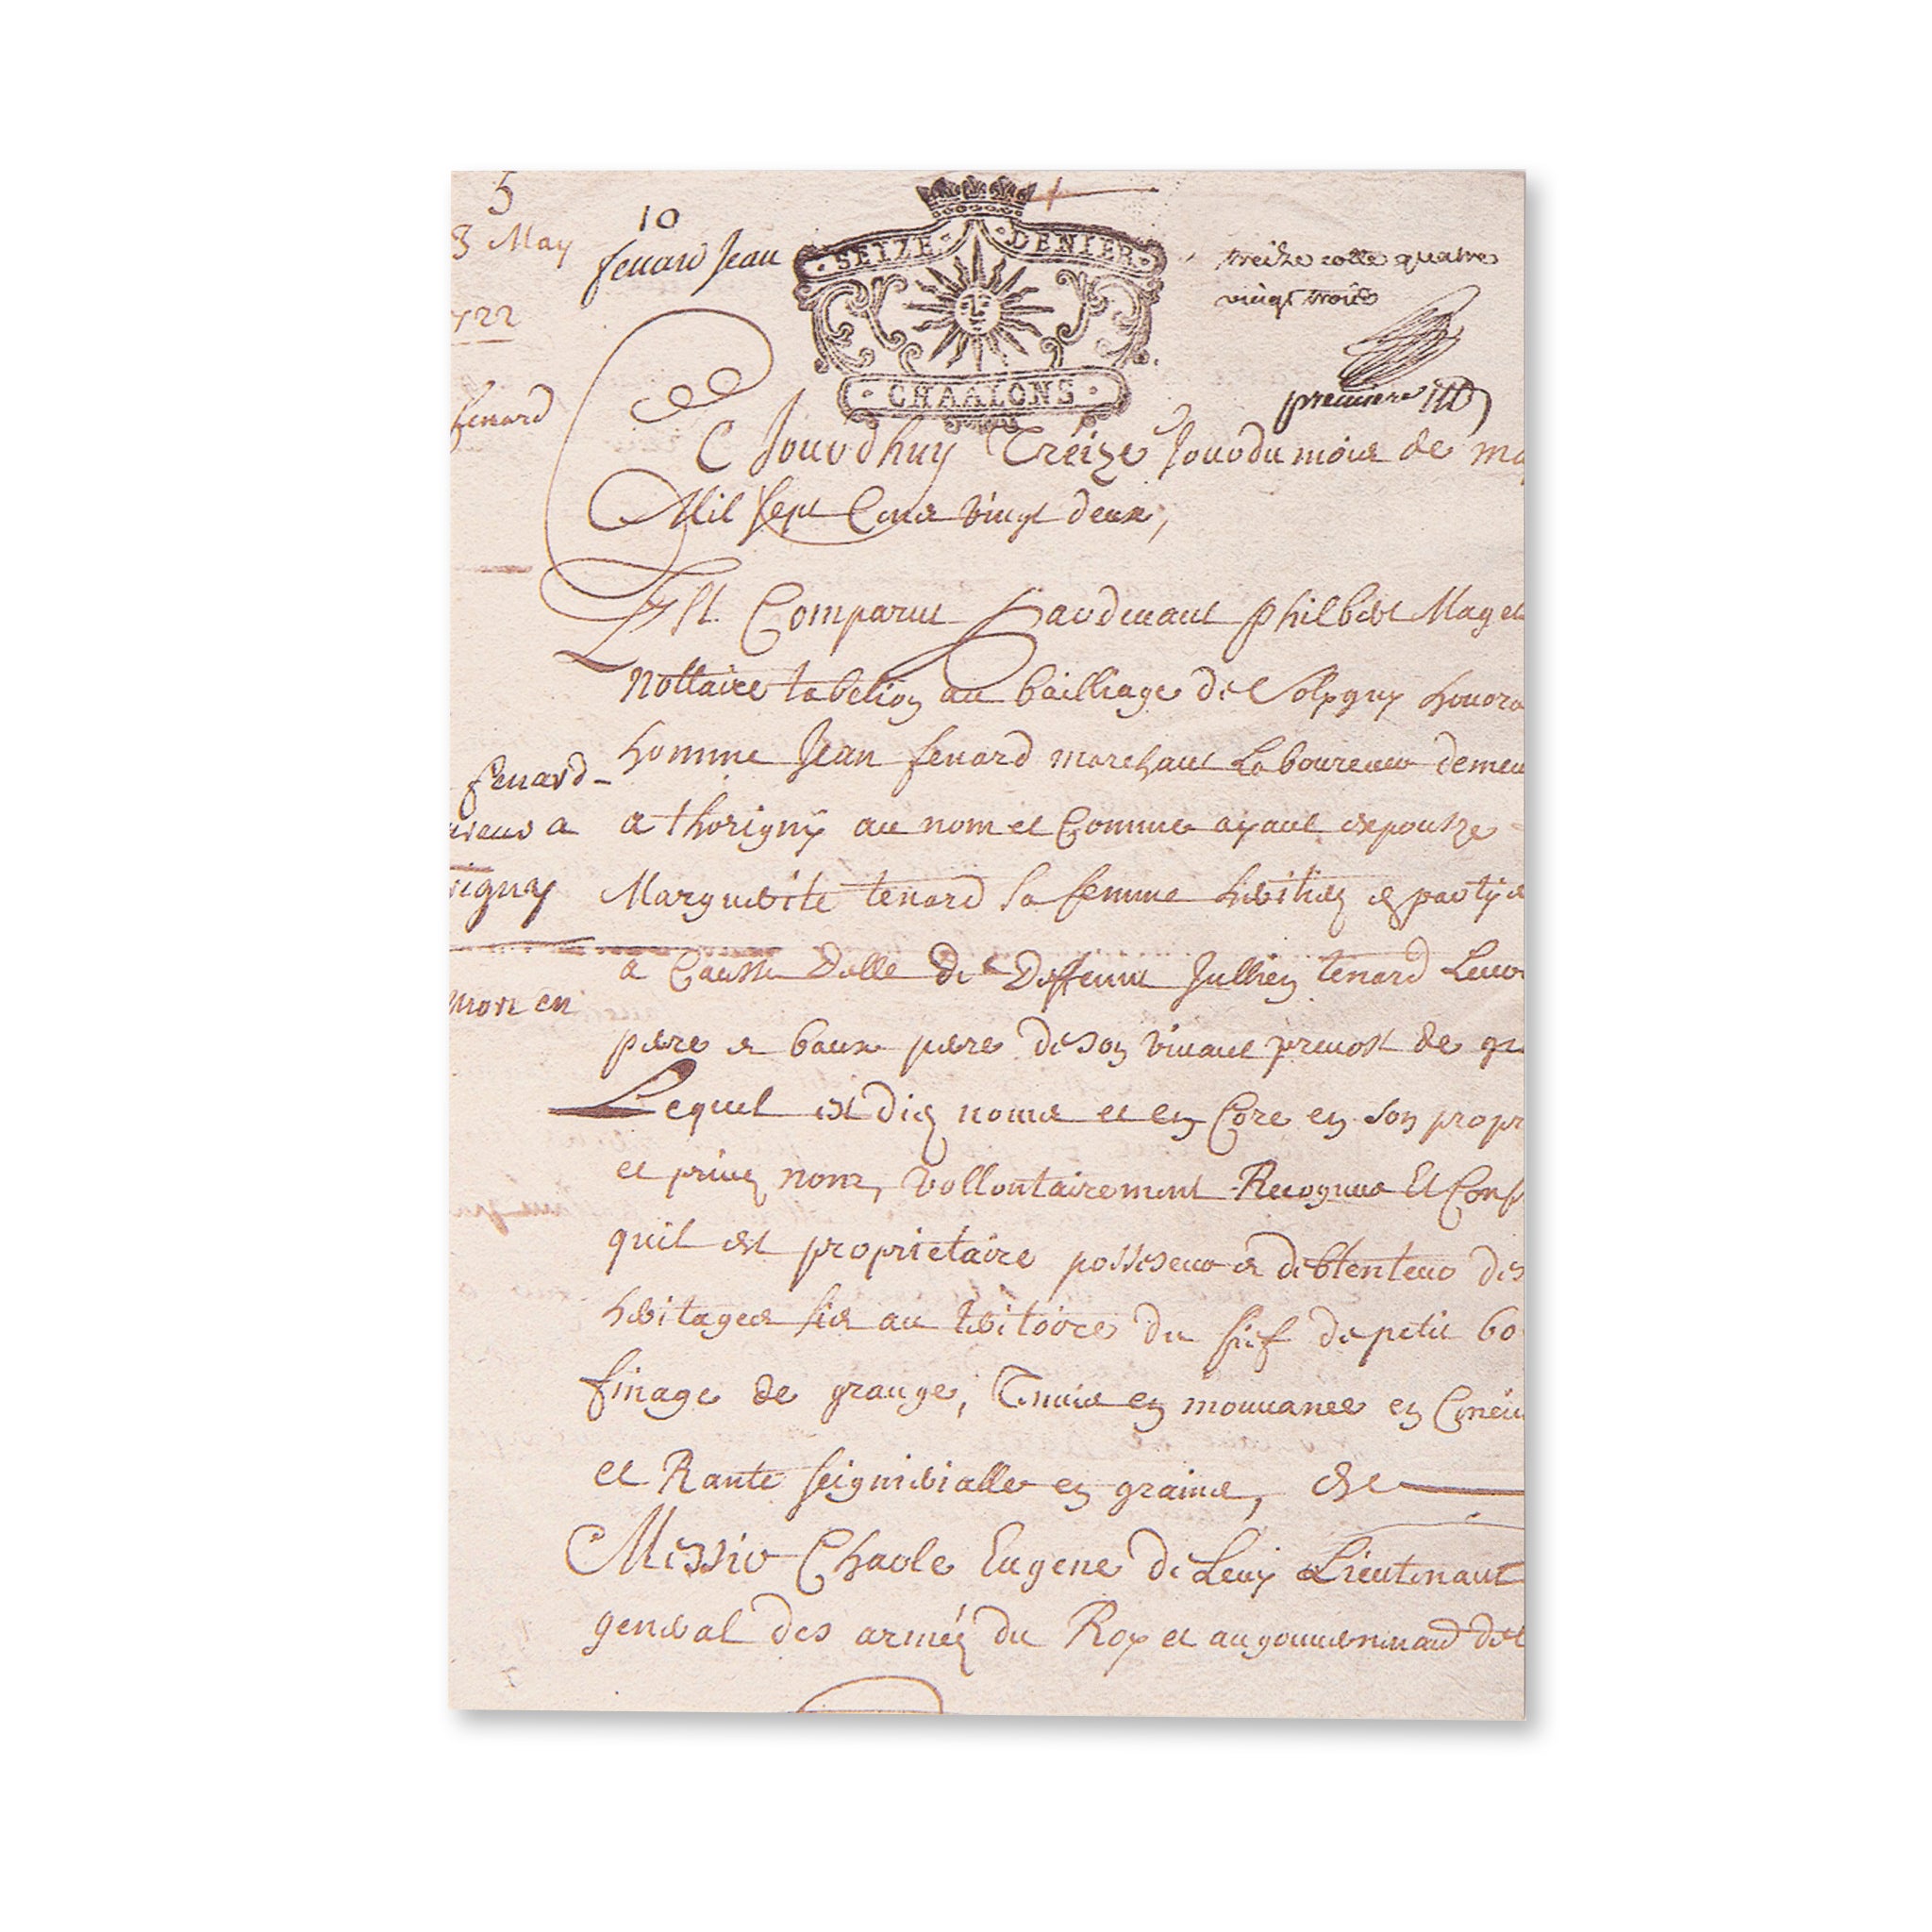 5
3 May
722
fenard
10
fenard Jean
SEIZE DENIER
CHAALONS
treize cotte quatre
vingt trois
premiere
Ce Jourdhuy Treize Jour du mois de ma
Mil Sept Cens vingt deux,
Est Comparut Pardevant Philbert Mag
Nottaire tabelion au bailliage de Soligny honora
homme Jean fenard marchant Laboureur demeu
a thorigny au nom et Comme ayant espousze
Marguerite tenard sa femme heritier et partye
a Cause delle de Deffunt Jullien tenard Leur
pere et baux pere de son vivant prevost de gr
Lequel est dicz noms et en Core en son propr
et privez nom, vollontairement Recognus Et Conf
quil est proprietaire possesseur et debtenteur des
heritages sis au teritoire du fief de petit bo
finage de grange, Tenus en mouvance en Censiv
et Rante seigneurialle en grains, de
Messir Charle Eugene de Levy Lieutenant
general des armez du Roy et au gouvernmant de
fenard
a
rigny
mort en